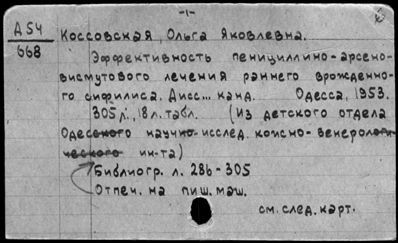 -1-
Д 54
668
Коссовская, Ольга Яковлевна.
Эффективность пенициллино-арсено-
висмутового лечения раннего врожденно-
го сифилиса. Дисс... канд. Одесса, 1953.
305 л., 18 л. табл. (Из детского отдела
Одесского научно-исслед. кожно-венерологи-
ческого ин-та)
Библиогр. л. 286-305
Отпеч. на пиш. маш.
см. след. карт.